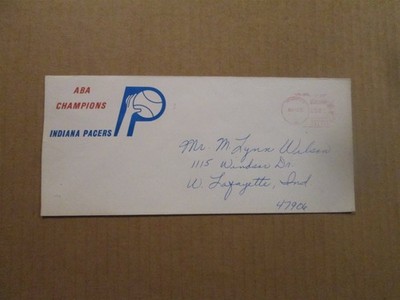 ABA
CHAMPIONS
INDIANA PACERS
Mr M Lynn Wilson
1115 Windsor Dr.
W. Lafayette, Ind
47906